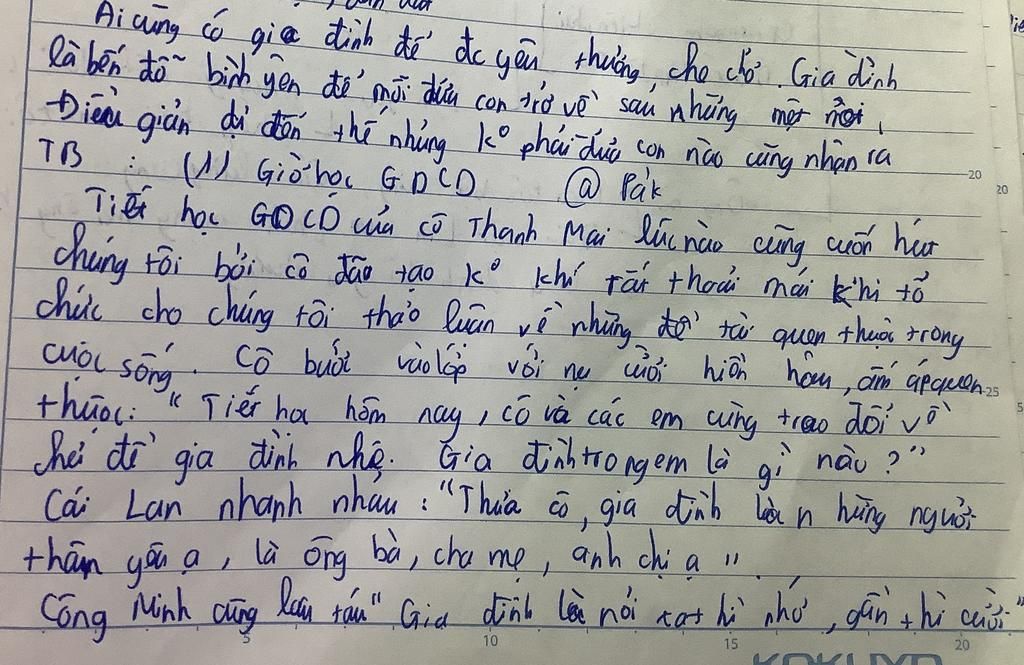 Ai cũng có gia đình để đc yêu thương, che chở. Gia đình
là bến đỗ bình yên để mỗi đứa con trở về sau những mệt mỏi,
Điều giản dị đến thế nhưng k° phải đứa con nào cũng nhận ra
TB : (1) Giờ học GDCD @ Pák
Tiết học GDCD của cô Thanh Mai lúc nào cũng cuốn hút
chúng tôi bởi cô đã tạo k° khí rất thoải mái khi tổ
chức cho chúng tôi thảo luận về những đề tài quen thuộc trong
cuộc sống. Cô bước vào lớp với nụ cười hiền hậu, ấm áp quen
thuộc: "Tiết học hôm nay, cô và các em cùng trao đổi về
chủ đề gia đình nhé. Gia đình trong em là gì nào?"
Cái Lan nhanh nhảu: "Thưa cô, gia đình là những người
thân yêu ạ, là ông bà, cha mẹ, anh chị ạ".
Công Minh cũng láu táu "Gia đình là nơi xa thì nhớ, gần thì cười"
20
25
5
10
15
20
KOKUYO